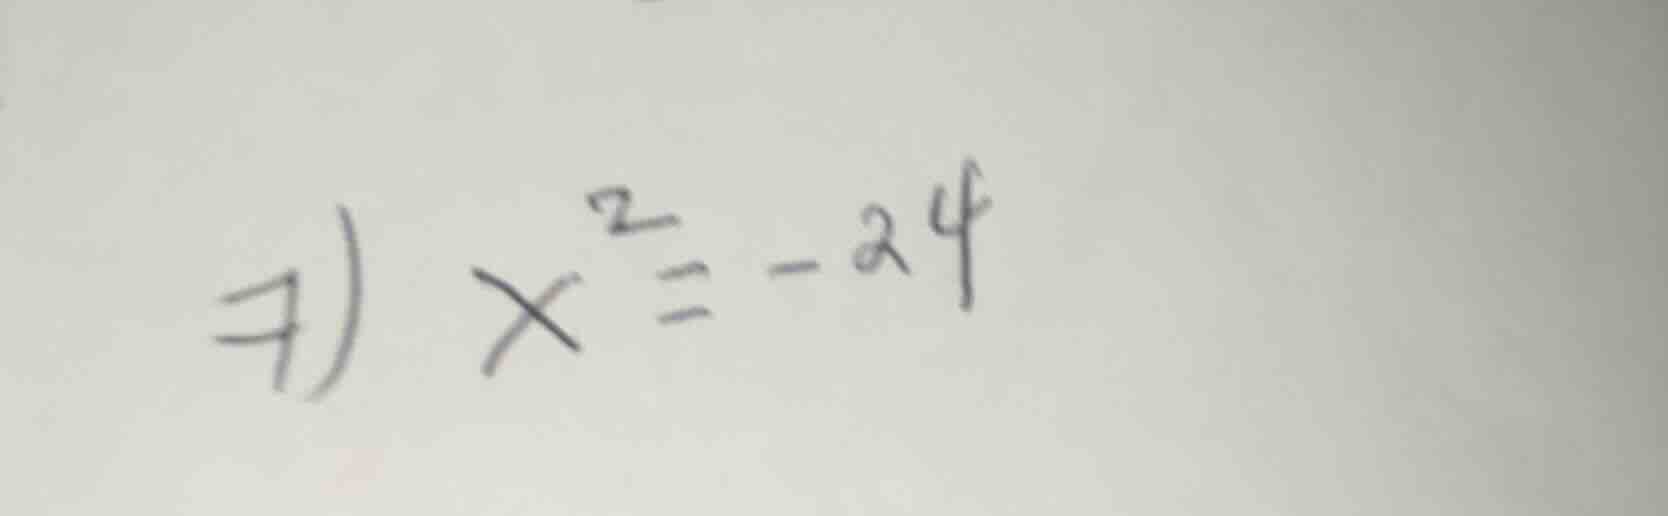 7) x² = -24